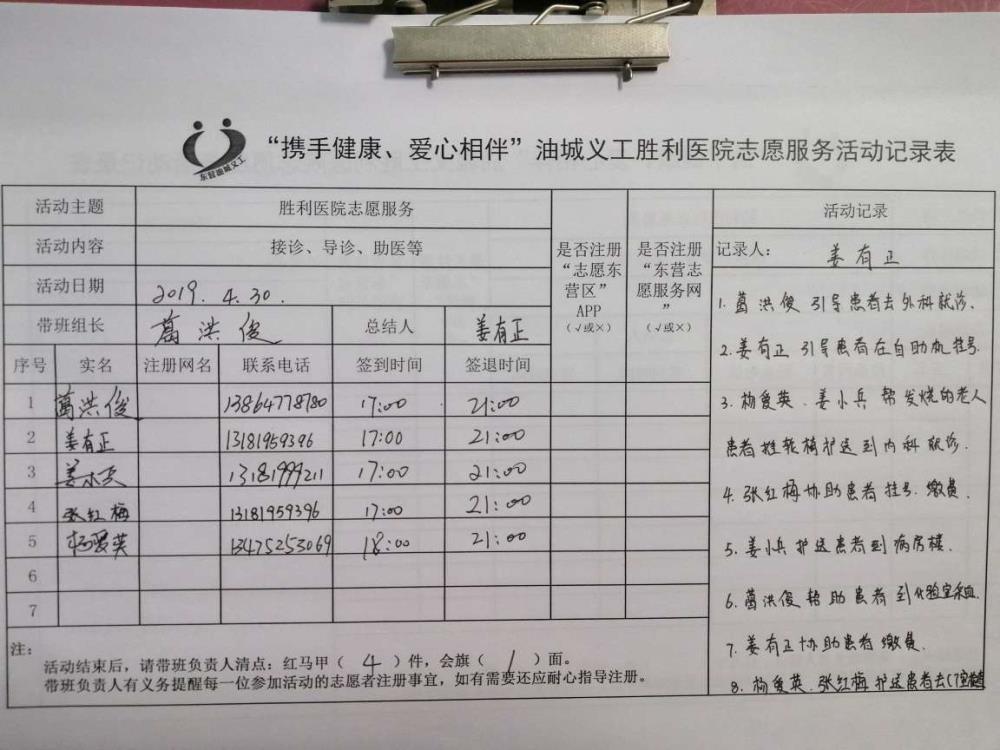 东营油城义工
“携手健康、爱心相伴”油城义工胜利医院志愿服务活动记录表
活动主题 胜利医院志愿服务
活动内容 接诊、导诊、助医等
活动日期 2019. 4. 30.
带班组长 葛洪俊 总结人 姜有正
是否注册“志愿东营区”APP（√或×）
是否注册“东营志愿服务网”（√或×）
序号 实名 注册网名 联系电话 签到时间 签退时间
1 葛洪俊 13864778780 17:00 21:00
2 姜有正 13181959396 17:00 21:00
3 姜小兵 13181999211 17:00 21:00
4 张红梅 13181959396 17:00 21:00
5 杨爱英 13475253069 18:00 21:00
6
7
注：
活动结束后，请带班负责人清点：红马甲（ 4 ）件，会旗（ 1 ）面。
带班负责人有义务提醒每一位参加活动的志愿者注册事宜，如有需要还应耐心指导注册。
活动记录
记录人： 姜有正
1. 葛洪俊 引导患者去外科就诊.
2. 姜有正 引导患者在自助机挂号.
3. 杨爱英. 姜小兵 帮发烧的老人
患者推轮椅护送到内科就诊.
4. 张红梅协助患者挂号. 缴费.
5. 姜小兵护送患者到病房楼.
6. 葛洪俊帮助患者到化验室采血.
7. 姜有正协助患者缴费.
8. 杨爱英. 张红梅护送患者去CT室